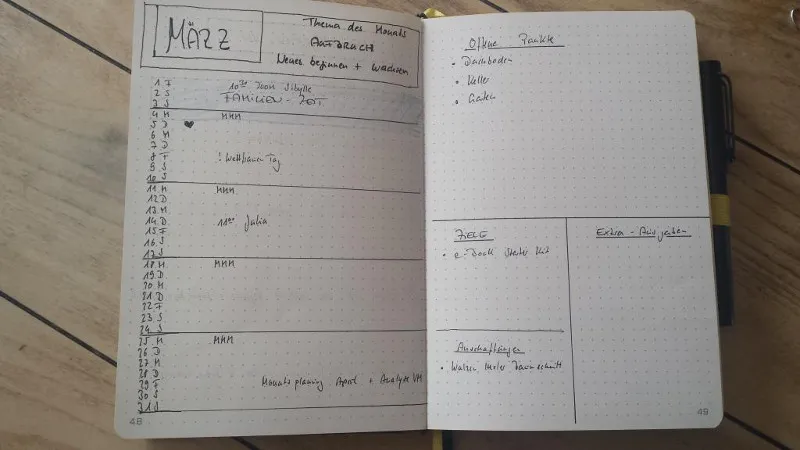 MÄRZ
Thema des Monats
AUFBRUCH
Neues beginnen + wachsen
1 F
2 S
3 S
4 M
5 D
6 M
7 D
8 F
9 S
10 S
11 M
12 D
13 M
14 D
15 F
16 S
17 S
18 M
19 D
20 M
21 D
22 F
23 S
24 S
25 M
26 D
27 M
28 D
29 F
30 S
31 S
10³⁰ Zoom Sibylle
FAMILIEN-Zeit
MMM
! Weltfrauen Tag
MMM
11⁰⁰ Julia
MMM
MMM
Monatsplanung April + Analyse VM
48
Offene Punkte
• Dachboden
• Keller
• Garten
ZIELE
• e-Book Starter Kit
Anschaffungen
Extra-Ausgaben
49